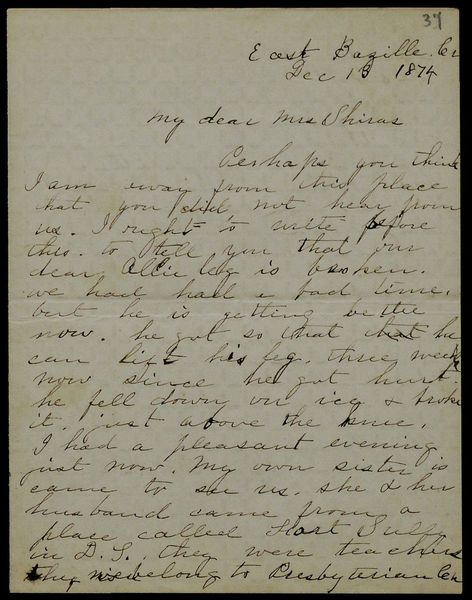 37
East Bazille. Cr
Dec 13 1874
My dear Mrs Shiras
Perhaps you think
I am away from this place
that you did not hear from
us. I right to write before
this. to tell you that our
dear Ollie leg is broken.
we had had a bad time.
but he is getting bette
now. he got so that that he
can lift his leg. three weeks
now since he got hurt.
he fell down on ice & broke
it. just above the knee.
I had a pleasant evening
just now. My own sister is
came to see us. she & her
husband came from a
place called Fort Sully
in D. T., they were teachers
they belong to Presbyterian Ch